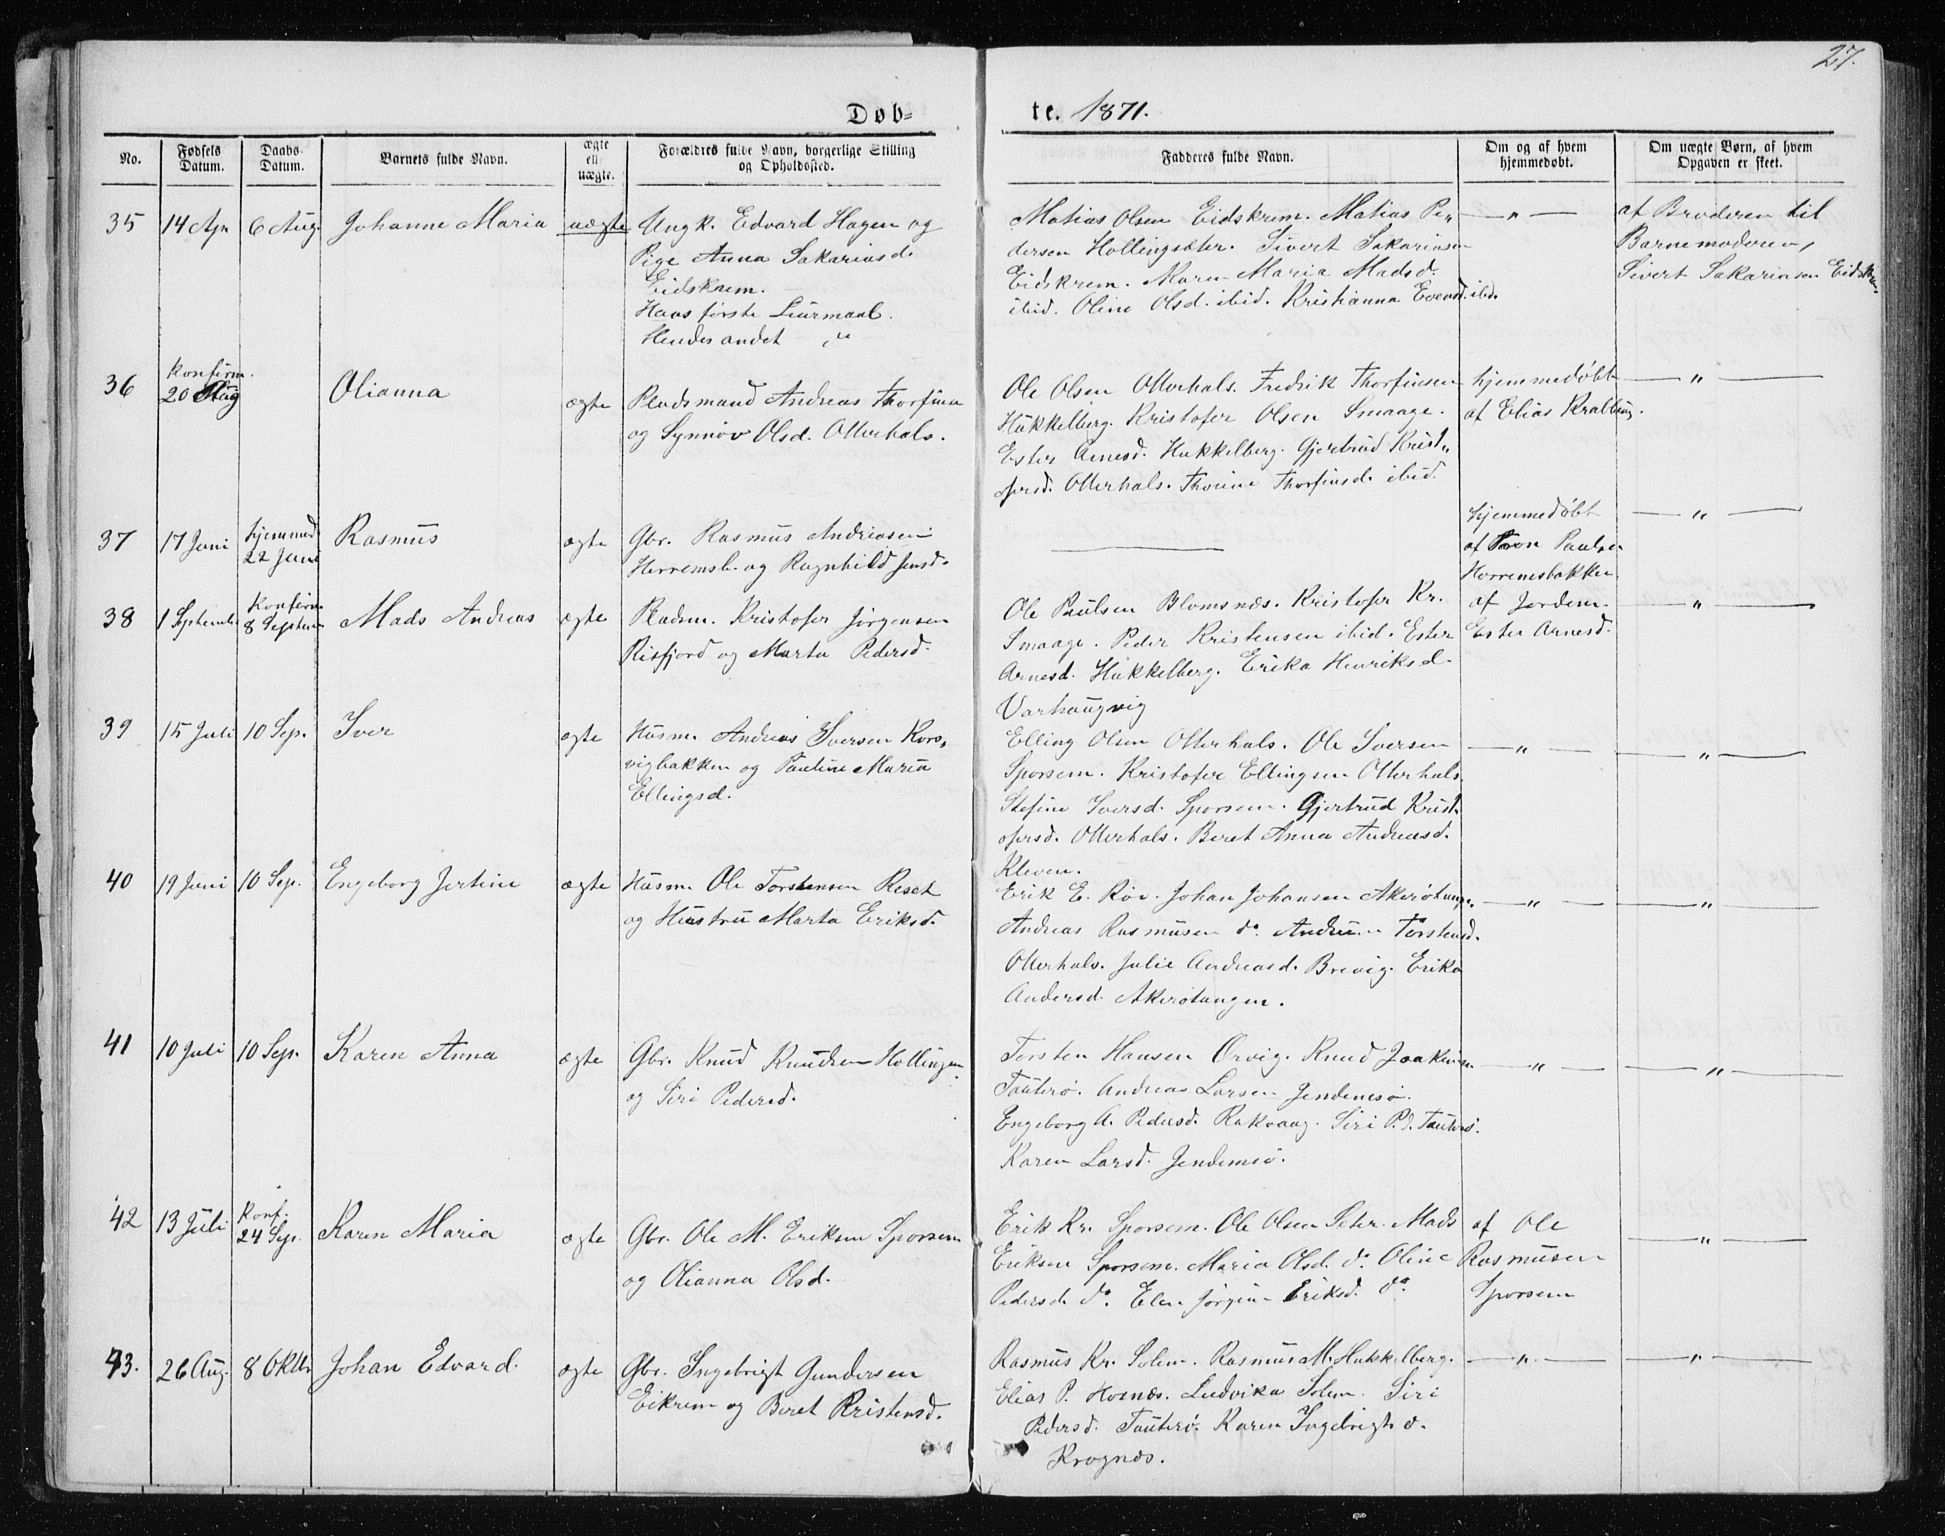 27.
Døb-
te. 1871.
No.
Fødsels Datum.
Daabs- Datum.
Barnets fulde Navn.
ægte ell. uægte.
Forældres fulde Navn, borgerlige Stilling og Opholdssted.
Fadderes fulde Navn.
Om og af hvem hjemmedøbt.
Om uægte Børn, af hvem Opgaven er skeet.
35 14 Apr 6 Aug. Johanne Maria uægte
Ungk. Edvard Hagen og
Pige Anna Sakariasd.
Eidskrem.
Hans første Leiermaal.
Hendes andet — „
Matias Olsen Eidskrem. Matias Pe-
dersen Hollingsæter. Sivert Sakariasen
Eidskrem. Karen Maria Madsd.
ibid. Oline Olsd. ibid. Kristianna Evensd. ibid.
— „ —
af Broderen til
Barnemoderen,
Sivert Sakariasen Eidskrem.
36 Konfirm.
20 Aug Olianna ægte
Pladsmand Andreas Thorfinn
og Synnøv Olsd. Otterhals.
Ole Olsen Otterhals. Fredrik Thorfinsen
Hukkelberg. Kristofer Olsen Smaage.
Ester Arnesd. Hukkelberg. Gjertrud Krist-
ofersd. Otterhals. Thorine Thorfinsd. ibid.
hjemmedøbt
af Elias
— „ —
37 17 Juni hjemmed.
22 Juni Rasmus ægte
Gbr. Rasmus Andreasen
Herremsb. og Ragnhild Jensd.
———
hjemmedøbt
af Paulsen
Horremsbakken
— „ —
38 1 Septemb. Konfirm.
8 Septem Mads Andreas ægte
Pladsm. Kristofer Jørgensen
Risfjord og Marta Pedersd.
Ole Paulsen Blomsnæs. Kristofer Kr.
Smaage. Peder Kristensen ibid. Ester
Arnesd. Hukkelberg. Erika Henriksd.
Varhaugvig
af Jordem.
Ester Arnesd.
— „ —
39 15 Juli 10 Sep. Iver ægte
Husm. Andreas Iversen Kors-
vigbakken og Pauline Maria
Ellingsd.
Elling Olsen Otterhals. Ole Iversen
Sporsem. Kristofer Ellingsen Otterhals
Stefine Iversd. Sporsem. Gjertrud Krist-
ofersd. Otterhals. Beret Anna Andreasd.
Kleven.
— „ —
— „ —
40 19 Juni 10 Sep. Engeborg Jertine ægte
Husm. Ole Torstensen Reset
og Hustru Marta Eriksd.
Erik E. Røv. Johan Johansen Akerøtangen
Andreas Rasmusen do. Andrea Torstensd.
Otterhals. Julie Andreasd. Brevig. Erika
Andersd. Akerøtangen.
— „ —
— „ —
41 10 Juli 10 Sep. Karen Anna ægte
Gbr. Knud Knudsen Hollingen
og Siri Pedersd.
Torsten Hansen Orvig. Knud Joakimsen
Tauterø. Andreas Larsen Jendemsø.
Engeborg A. Pedersd. Rakvaag. Siri P.d. Tauterø.
Karen Larsd. Jendemsø.
— „ —
— „ —
42 13 Juli Konf.
24 Sep. Karen Maria ægte
Gbr. Ole M. Eriksen Sporsem
og Olianna Olsd.
Erik Kr. Sporsem. Ole Olsen Seter. Mads
Eriksen Sporsem. Maria Olsd. do. Oline
Pedersd. do. Elen Jørgine Eriksd. do
af Ole
Rasmusen
Sporsem
— „ —
43. 26 Aug. 8 Oktbr Johan Edvard ægte
Gbr. Ingebrigt Gundersen
Eikrem og Beret Kristensd.
Rasmus Kr. Solem. Rasmus M. Hukkelberg.
Elias P. Hornæs. Ludvika Solem. Siri
Pedersd. Tauterø. Karen Ingebrigtsd.
Krognæs.
— „ —
— „ —